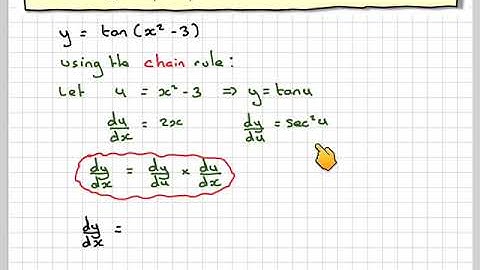 y = tan(x² - 3)
using the chain rule:
Let u = x² - 3 ⇒ y = tan u
du/dx = 2x dy/du = sec²u
dy/dx = dy/du × du/dx
dy/dx =